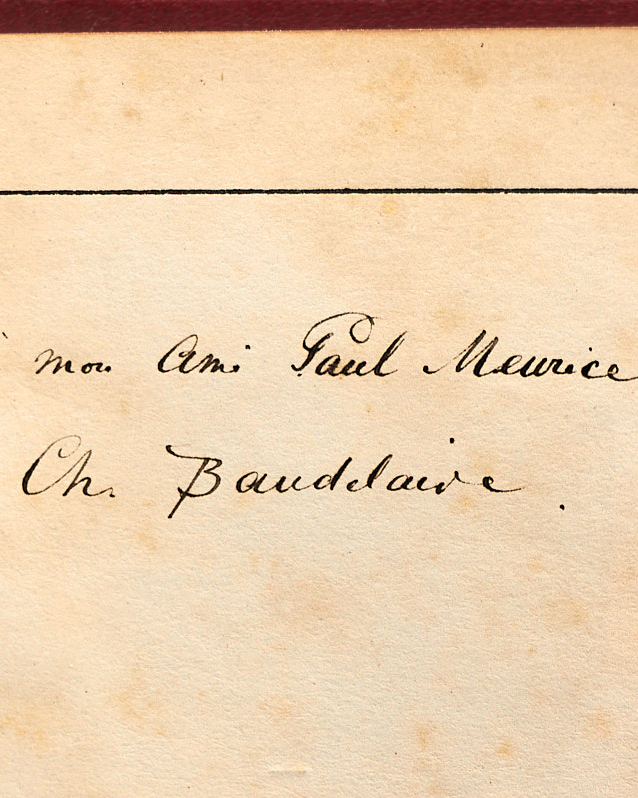 à mon Ami Paul Meurice
Ch. Baudelaire.